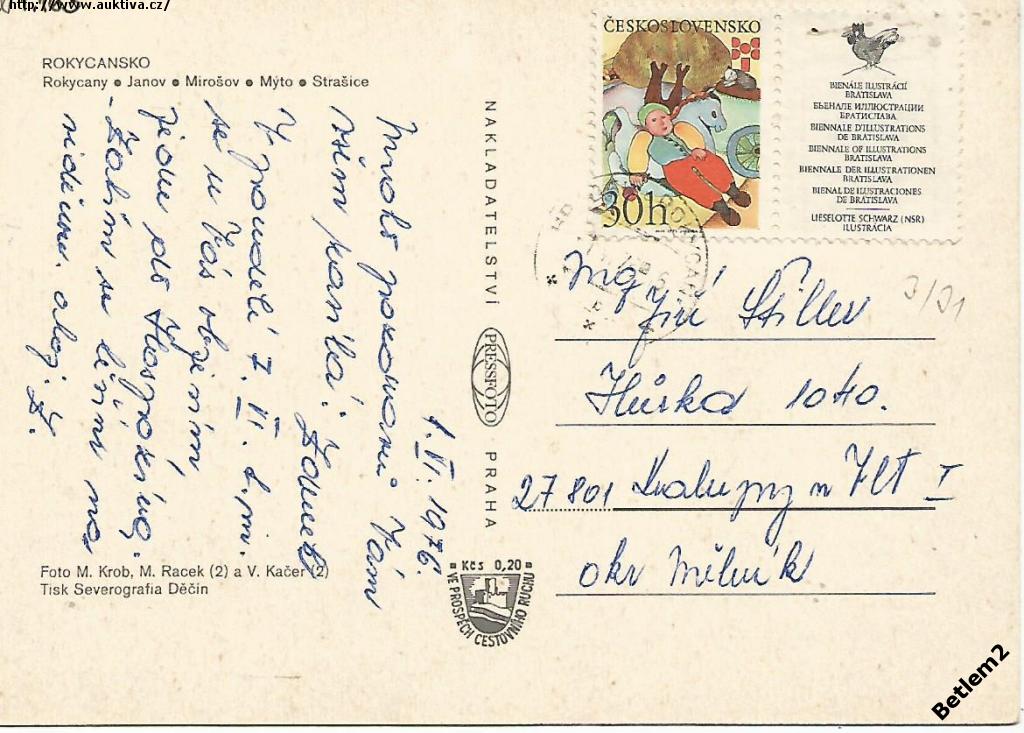 http://www.auktiva.cz/
ROKYCANSKO
Rokycany • Janov • Mirošov • Mýto • Strašice
Mnoho pozdravů Vám
všem posílá: Zdeněk
V pondělí 7. VI. t.m.
se u Vás objevím
jedu do
- Těším se s Vámi na
viděnou. ahoj. Z.
1. VI. 1976.
Foto M. Krob, M. Racek (2) a V. Kačer (2)
Tisk Severografia Děčín
NAKLADATELSTVÍ
PRESSFOTO
PRAHA
Kčs 0,20
VE PROSPĚCH CESTOVNÍHO RUCHU
ČESKOSLOVENSKO
30h
BIENÁLE ILUSTRÁCIÍ
BRATISLAVA
БЬЕНАЛЕ ИЛЛЮСТРАЦИИ
БРАТИСЛАВА
BIENNALE D'ILLUSTRATIONS
DE BRATISLAVA
BIENNALE OF ILLUSTRATIONS
BRATISLAVA
BIENNALE DER ILLUSTRATIONEN
BRATISLAVA
BIENAL DE ILUSTRACIONES
DE BRATISLAVA
LIESELOTTE SCHWARZ (NSR)
ILUSTRÁCIA
ROKYCANY
3/91
Ing Jiří Štiller
Hůrka 1040.
27801 Kralupy n Vlt I
okr Mělník
Betlem2